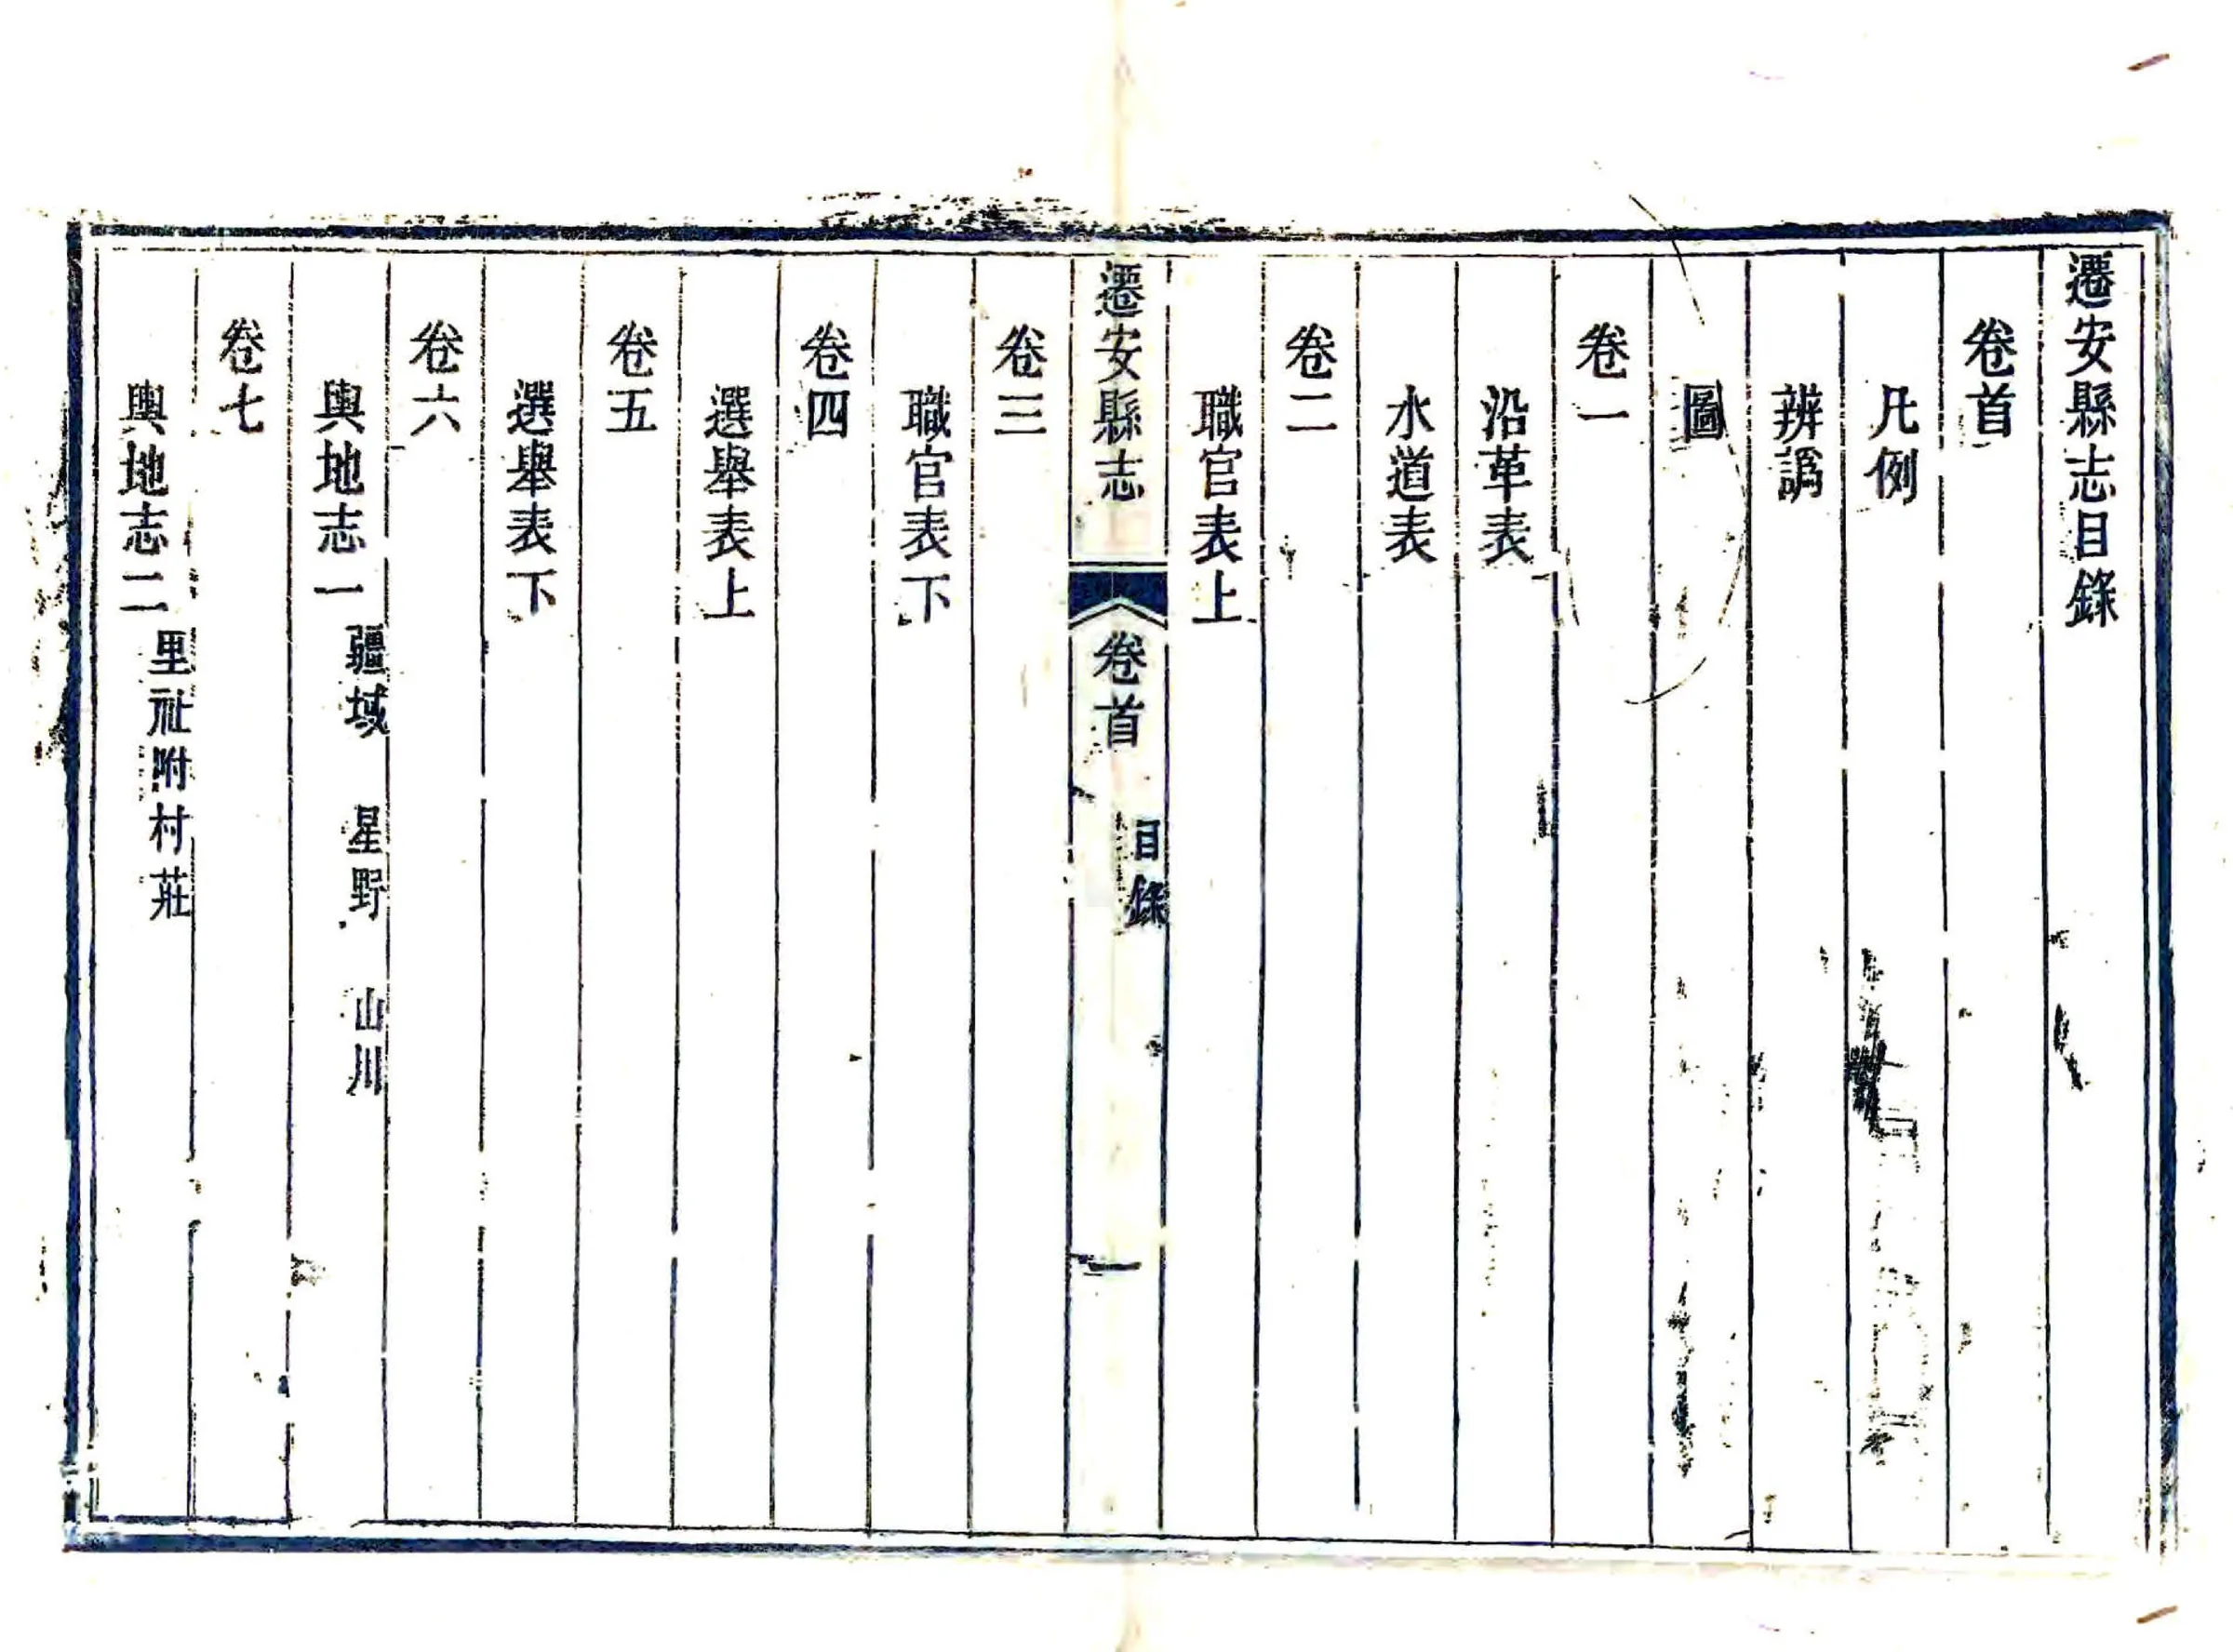 遷安縣志目錄
卷首
凡例
辨譌
圖
卷一
沿革表
水道表
卷二
職官表上
遷安縣志 卷首 目錄 一
卷三
職官表下
卷四
選舉表上
卷五
選舉表下
卷六
輿地志一 疆域 星野 山川
卷七
輿地志二 里社附村莊